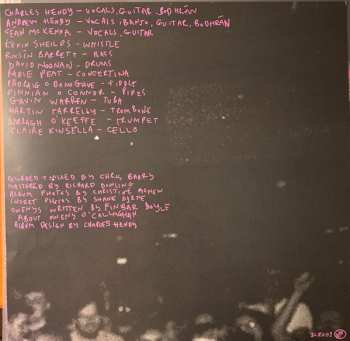 CHARLES HENDY - VOCALS, GUITAR, BODHRÁN
ANDREW HENDY - VOCALS, BANJO, GUITAR, BODHRÁN
SEAN MCKENNA - VOCALS, GUITAR
KEVIN SHEILDS - WHISTLE
ROISÍN BARRETT - BASS
DAVID NOONAN - DRUMS
RADIE PEAT - CONCERTINA
PADRAIG O DONOGHUE - FIDDLE
FINNIAN O CONNOR - PIPES
GAVIN WARREN - TUBA
MARTIN FARRELLY - TROMBONE
DARRAGH O KEEFFE - TRUMPET
CLAIRE KINSELLA - CELLO
RECORDED + MIXED BY CHRIS BARRY
MASTERED BY RICHARD DOWLING
ALBUM PHOTOS BY CHRISTINE
INSERT PHOTOS BY SHANE BYRNE
OWENYS WRITTEN BY FINBAR BOYLE
ABOUT OWENY O'CALLAGHAN
ALBUM DESIGN BY CHARLES HENDY